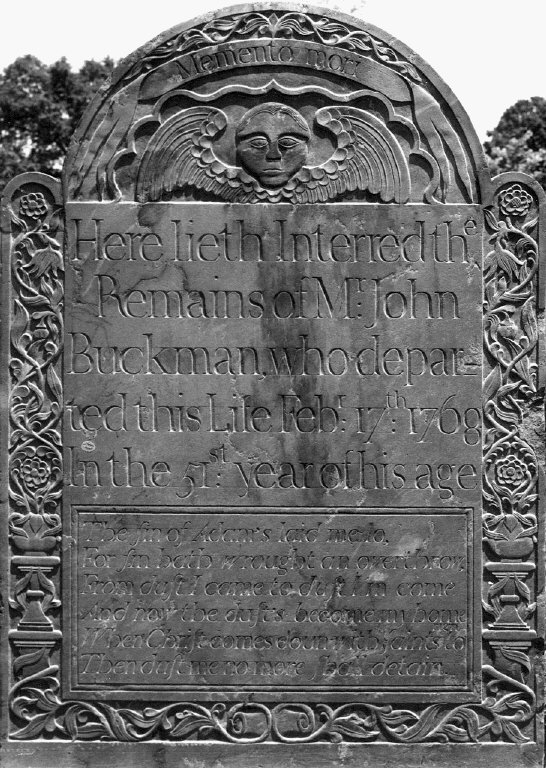 Memento mori
Here lieth Interred the
Remains of Mr. John
Buckman, who depar-
ted this Life Febr. 17th: 1768
In the 51st: year of his age
The ſin of Adam's laid me lo,
For ſin hath wrought an overthrow,
From duſt I came to duſt I'm come
And now the duſt's become my home
When Christ comes down with ſaints to
Then duſt me no more ſhall detain.